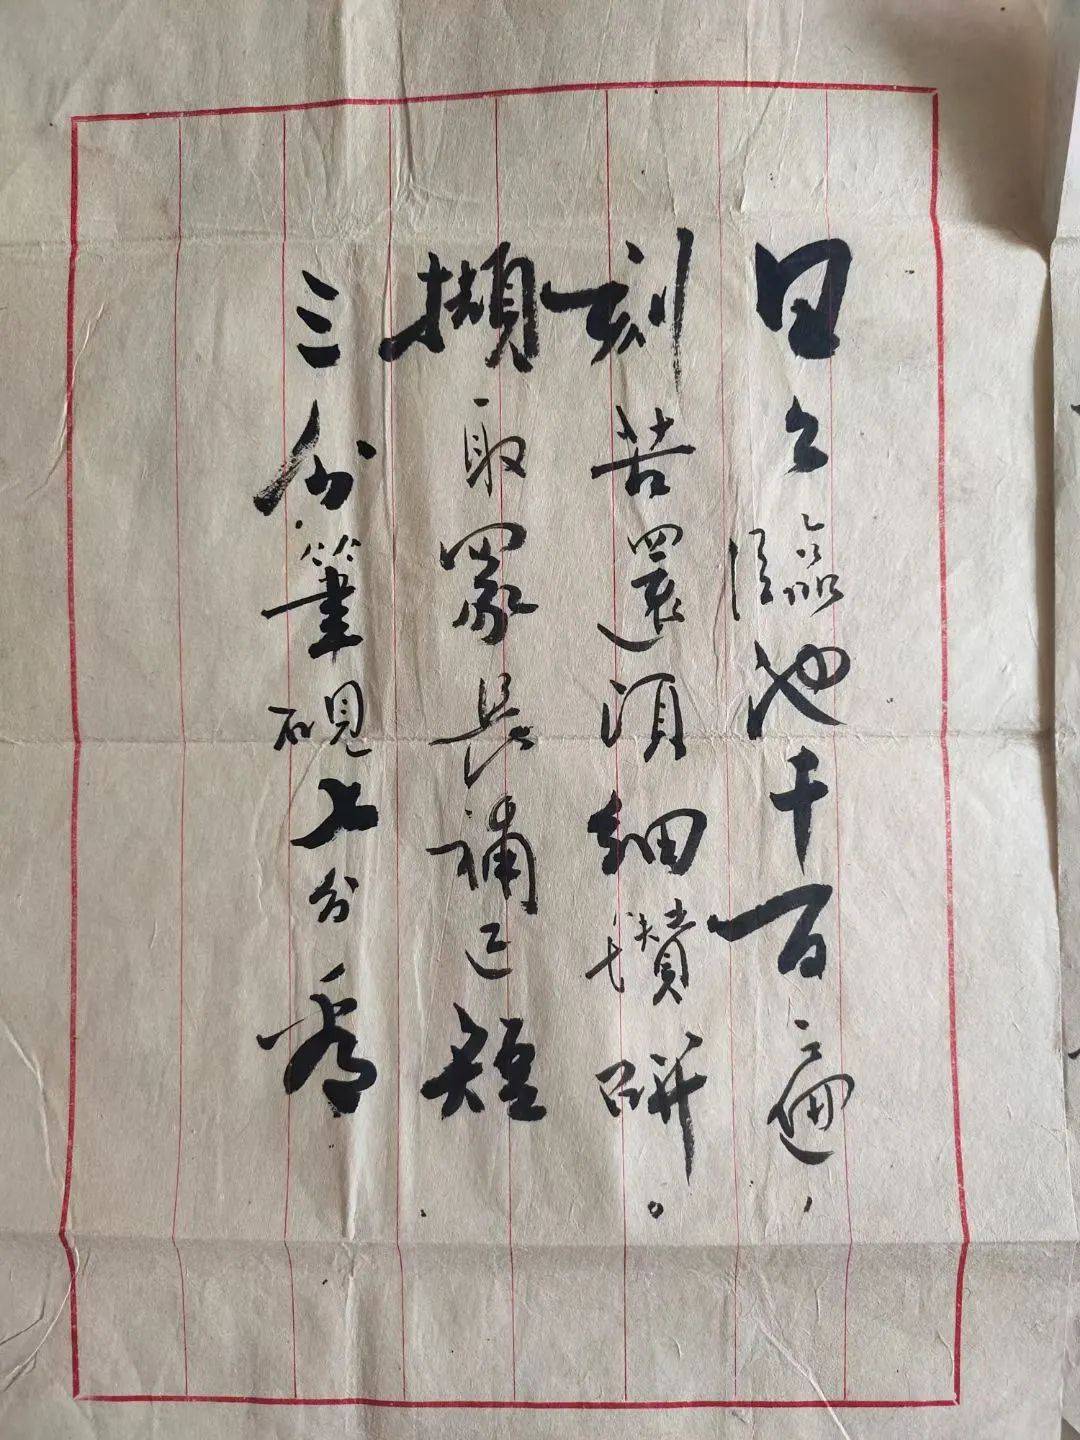 日々臨池千百遍，
刻苦還須細鑽研。
擷取眾長補己短，
三分筆硯七分看